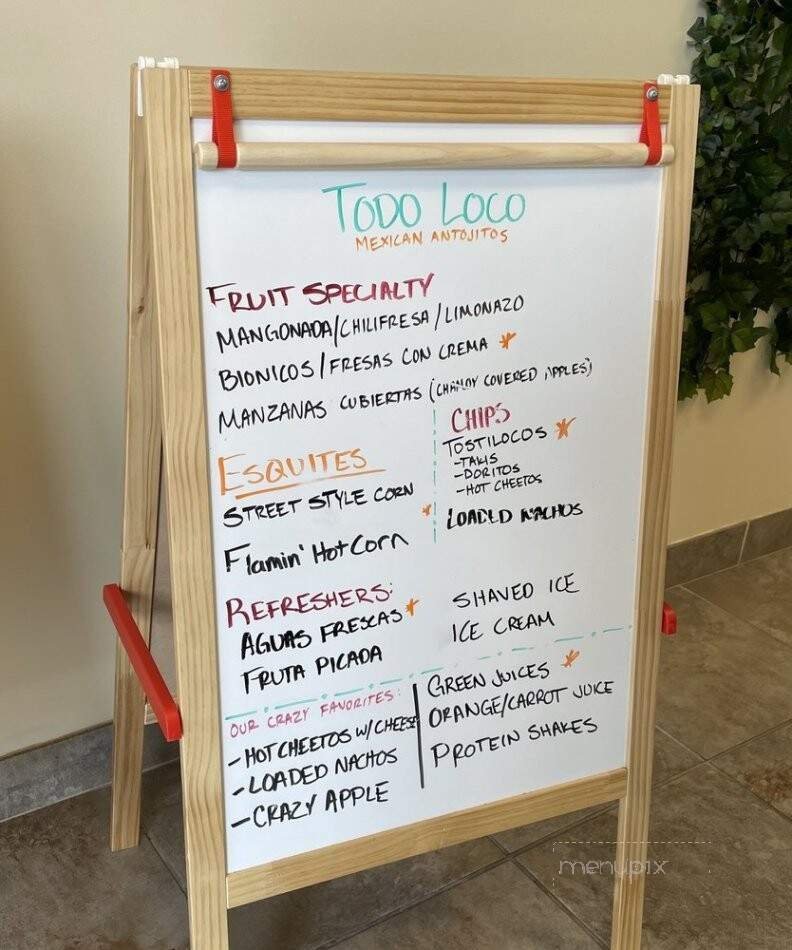 TODO LOCO
MEXICAN ANTOJITOS
FRUIT SPECIALTY
MANGONADA/CHILIFRESA/LIMONAZO
BIONICOS/FRESAS CON CREMA *
MANZANAS CUBIERTAS (CHAMOY COVERED APPLES)
ESQUITES
STREET STYLE CORN
Flamin' Hot Corn *
CHIPS
TOSTILOCOS *
-TAKIS
-DORITOS
-HOT CHEETOS
LOADED NACHOS
REFRESHERS:
AGUAS FRESCAS *
FRUTA PICADA
SHAVED ICE
ICE CREAM
OUR CRAZY FAVORITES:
- HOT CHEETOS W/CHEESE
- LOADED NACHOS
- CRAZY APPLE
GREEN JUICES *
ORANGE/CARROT JUICE
PROTEIN SHAKES
menupix